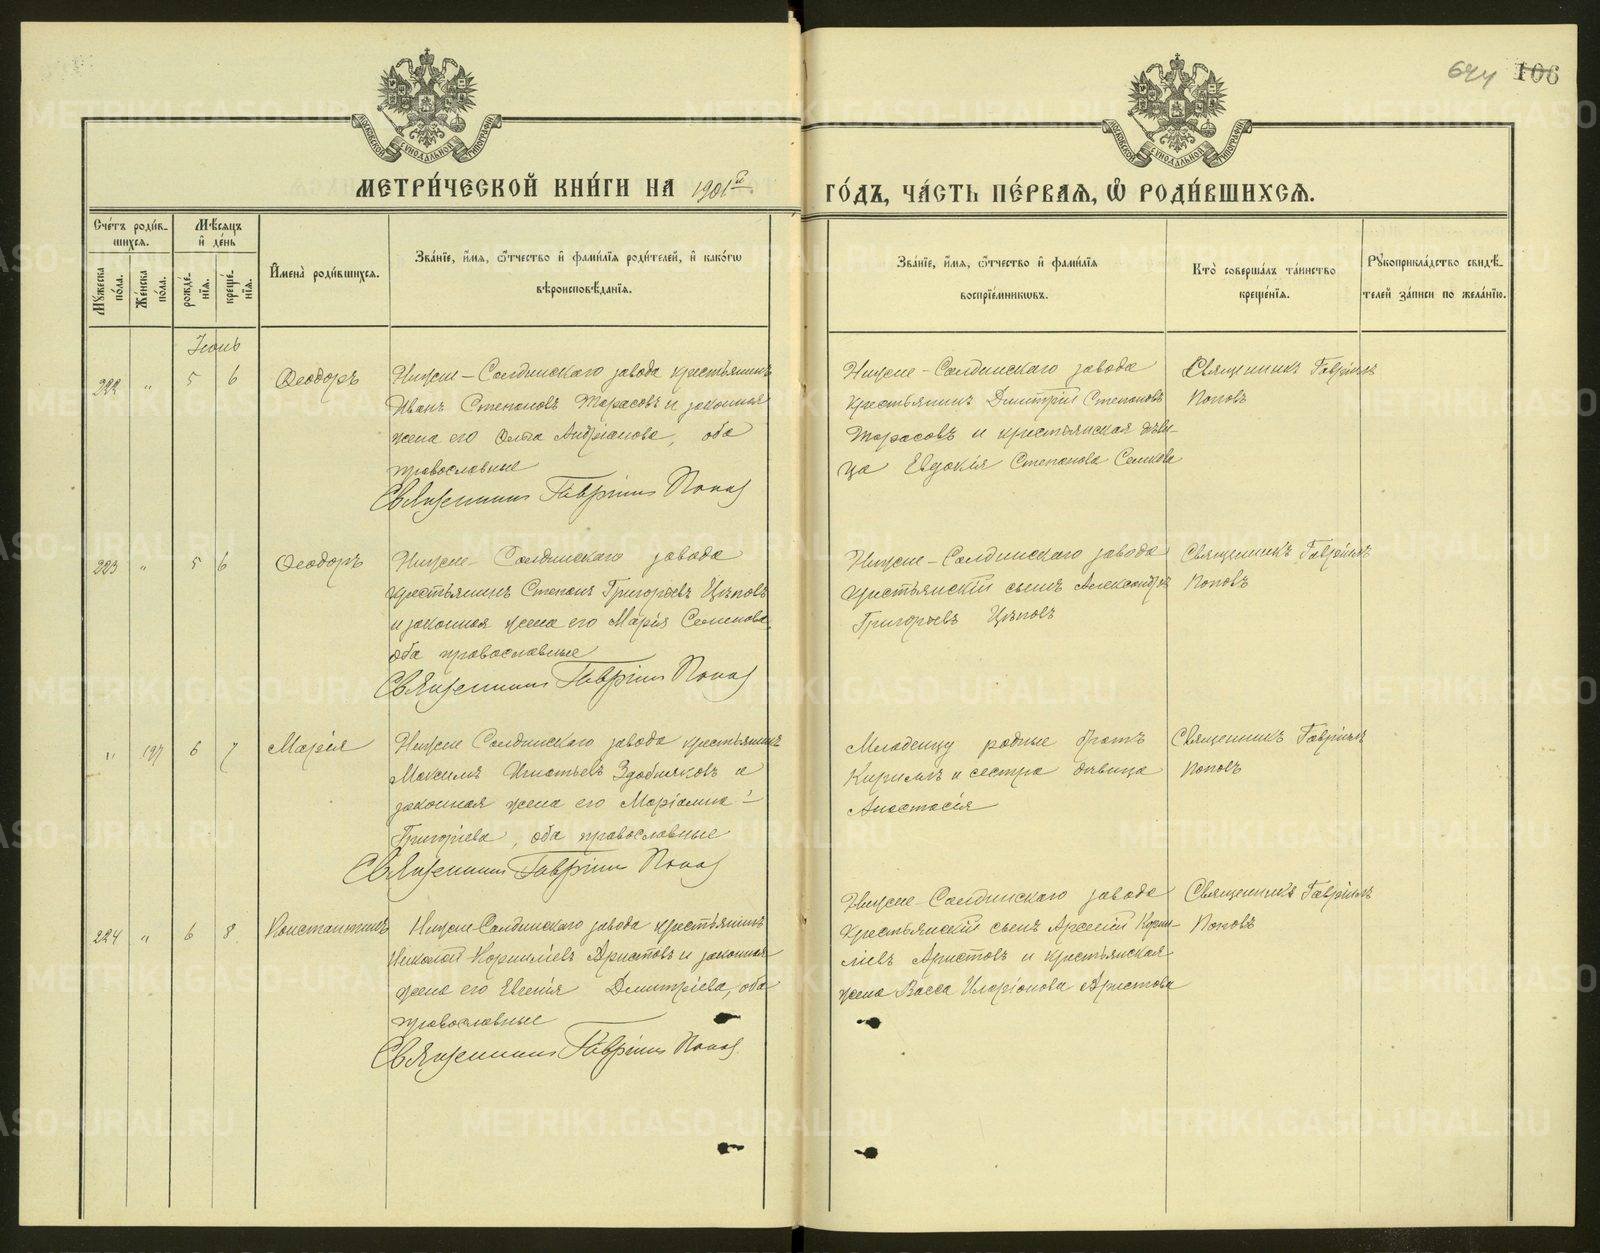 624 106
МОСКОВСКОЙ СѴНОДАЛЬНОЙ ТИПОГРАФІИ
МОСКОВСКОЙ СѴНОДАЛЬНОЙ ТИПОГРАФІИ
МЕТРИ́ЧЕСКОЙ КНИ́ГИ НА 1901й ГО́ДЪ, ЧА́СТЬ ПЕ́РВАѦ, Ѡ҆ РОДИ́ВШИХСѦ.
Сче́тъ роди́в-
шихсѧ.
Мѣ́сѧцъ
и҆ де́нь
Мꙋ́жеска по́ла.
Же́нска по́ла.
рожде́-
нїѧ.
креще́-
нїѧ.
И҆мена̀ роди́вшихсѧ.
Зва́нїе, и҆́мѧ, ѻ҆́тчество и҆ фами́лїѧ роди́телей, и҆ како́гѡ
вѣроисповѣ́данїѧ.
Зва́нїе, и҆́мѧ, ѻ҆́тчество и҆ фами́лїѧ
воспрїе́мникѡвъ.
Кто̀ соверша́лъ та́инство
креще́нїѧ.
Рꙋкоприкла́дство свидѣ́-
телей за́писи по жела́нїю.
Іюнь
222 „ 5 6 Ѳеодоръ
Нижне-Салдинскаго завода крестьянинъ
Иванъ Степановъ Тарасовъ и законная
жена его Ольга Андріанова, оба
православные
Священникъ Гавріилъ Поповъ
Нижне-Салдинскаго завода
крестьянинъ Дмитрій Степановъ
Тарасовъ и крестьянская дѣви-
ца Евдокія Степанова
Священникъ Гавріилъ
Поповъ
223 „ 5 6 Ѳеодоръ
Нижне-Салдинскаго завода
крестьянинъ Степанъ Григорьевъ Цѣповъ
и законная жена его Марія Семенова,
оба православные
Священникъ Гавріилъ Поповъ
Нижне-Салдинскаго завода
крестьянскій сынъ Александръ
Григорьевъ Цѣповъ
Священникъ Гавріилъ
Поповъ
„ 197 6 7 Марія
Нижне Салдинскаго завода крестьянинъ
Максимъ Игнатьевъ Здобняковъ и
законная жена его Маріамна
Григоріева, оба православные
Священникъ Гавріилъ Поповъ
Младенцу родные братъ
Кириллъ и сестра дѣвица
Анастасія
Священникъ Гавріилъ
Поповъ
224 „ 6 8 Константинъ
Нижне-Салдинскаго завода крестьянинъ
Николай Корниліевъ Аристовъ и законная
жена его Евгенія Дмитріева, оба
православные
Священникъ Гавріилъ Поповъ
Нижне-Салдинскаго завода
крестьянскій сынъ Арсеній Корни-
ліевъ Аристовъ и крестьянская
жена Васса Иларіонова Аристова
Священникъ Гавріилъ
Поповъ
METRIKI.GASO-URAL.RU